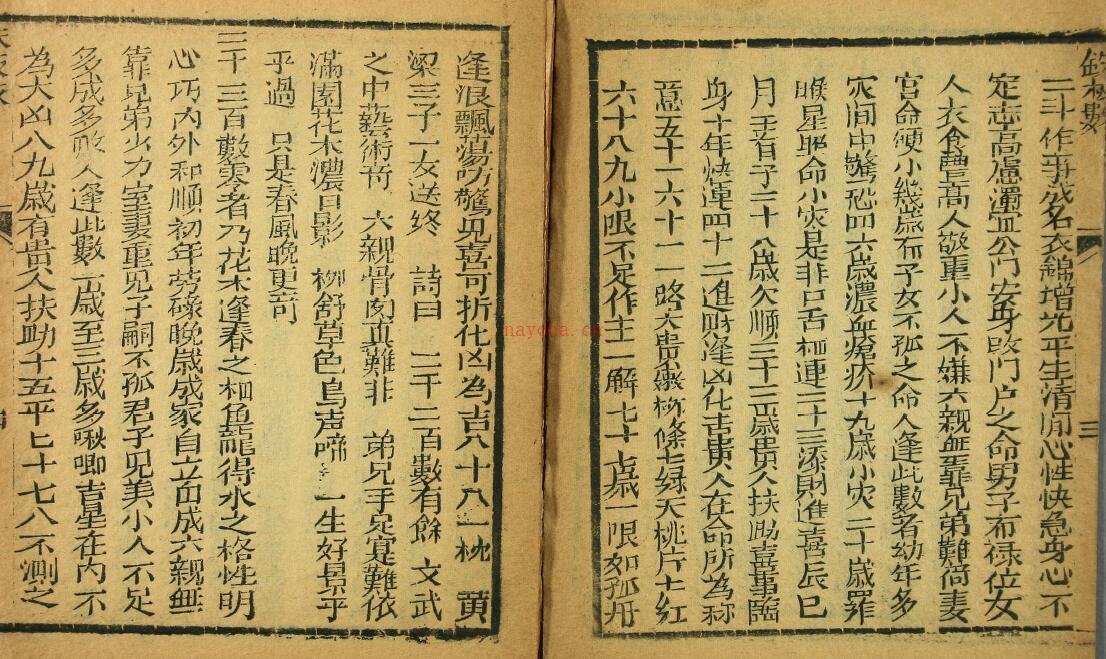 三
二斗作事成名衣錦增光平生清閒心性快急身心不
定志高慮濁宜公門安身改門户之命男子有禄位女
人衣食豐高人敬重小人不嫌六親無靠兄弟難倚妻
宮命硬小幾歲有子女不孤之命人逢此數者幼年多
灾间中驚恐四六歲濃血瘡疥十九歲小灾二十歲羅
睺星照命小灾是非口舌相連三十三添財進喜辰巳
月王首子二十八歲欠順三十二歲貴人扶助喜事臨
身十年快運四十二進財逢凶化吉貴人在命所為称
意五十一六十一路大貴絲條七緑天桃片片紅
六十八九小限不足作主一解七十七歲一限如孤舟
逢浪飄蕩吩驚見喜可折化凶為吉八十八一枕 黄
梁三子一女送終 詩曰 二千二百數有餘 文武
之中藝術奇 六親骨肉真難非 弟兄手足寔難依
滿園花木濃日影 柳舒草色鳥声啼 一生好景平
平過 只是春風晚更奇
三千三百數零者乃花木逢春之相魚龍得水之格性明
心巧内外和順初年劳碌晚歲成家自立自成六親無
靠兄弟少力室妻重見子嗣不孤君子見美小人不足
多成多敗人逢此數一歲至三歲多啾唧吉星在内不
為大凶八九歲有貴人扶助十五平七十七八不測之
nayona.cn